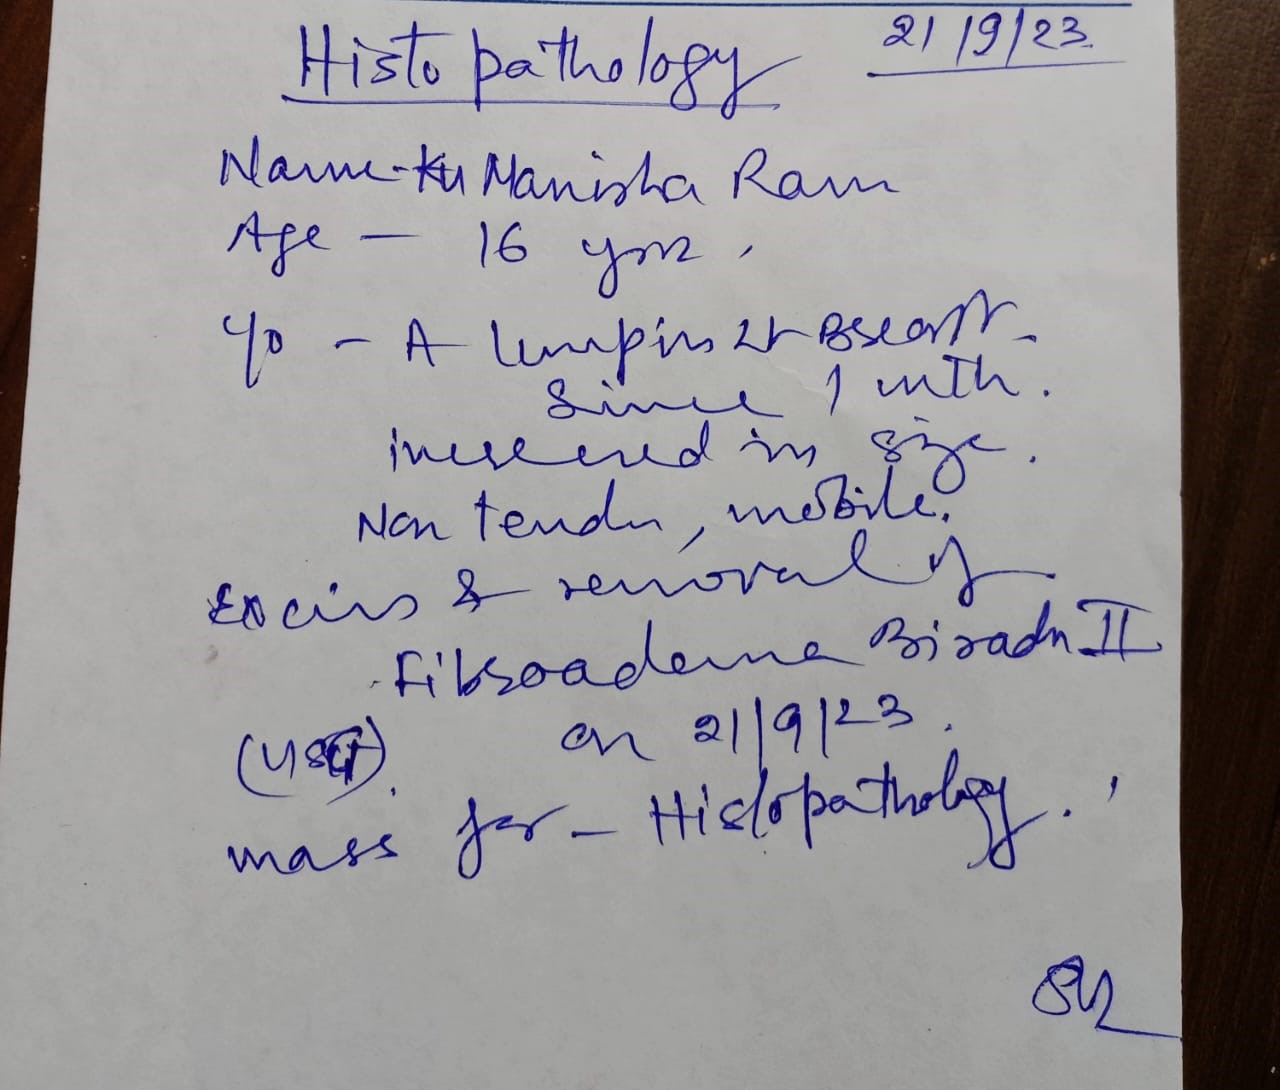 Histopathology 21/9/23
Name-Ku Manisha Ram
Age - 16 yrs,
c/o - A lump in Lt Breast -
Since 1 mth.
increased in size.
Non tender, mobile.
Excis & removal of
Fibroadenma Biradn II
(USG) on 21/9/23.
mass for - Histopathology.